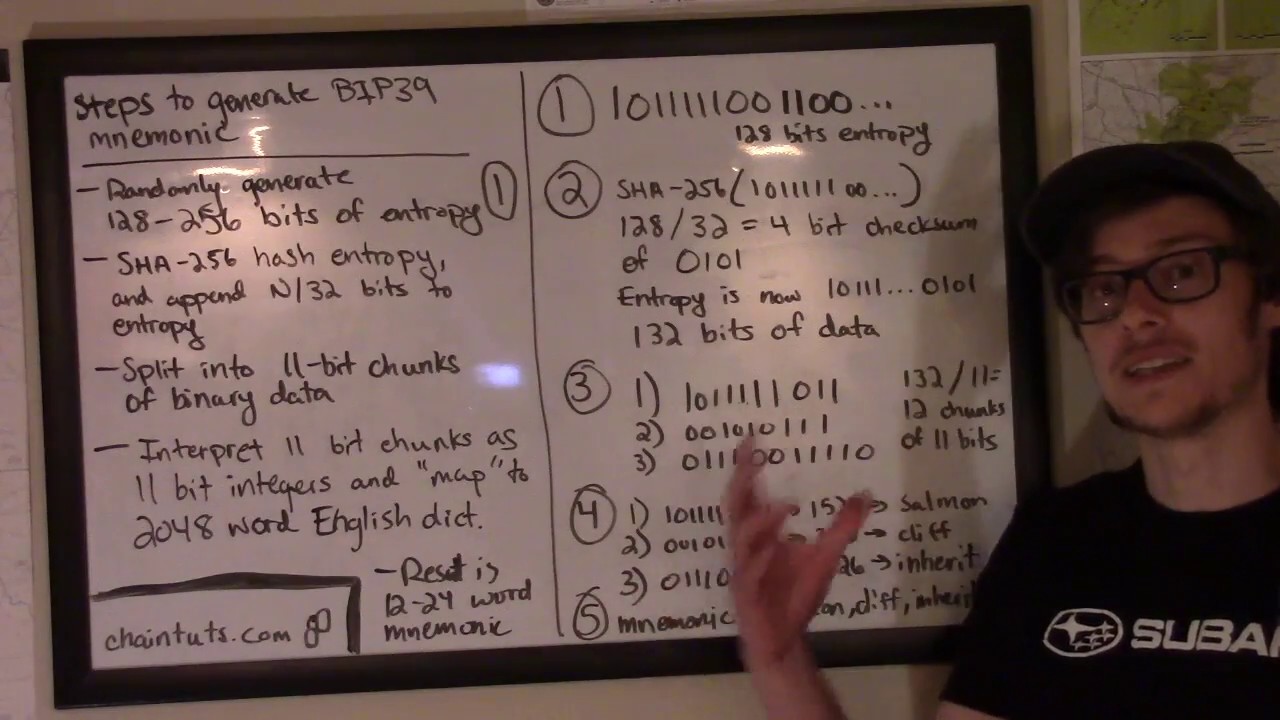 Steps to generate BIP39
mnemonic
- Randomly generate
128-256 bits of entropy ①
- SHA-256 hash entropy,
and append N/32 bits to
entropy
- Split into 11-bit chunks
of binary data
- Interpret 11 bit chunks as
11 bit integers and "map" to
2048 word English dict.
- Result is
12-24 word
mnemonic
chaintuts.com
① 101111100 1100...
128 bits entropy
② SHA-256(1011111 00...)
128/32 = 4 bit checksum
of 0101
Entropy is now 10111...0101
132 bits of data
③ 1) 101111 1 011
2) 001010111
3) 01110011110
132/11=
12 chunks
of 11 bits
④ 1) 10111 → salmon
2) 00101 → cliff
3) 01110 26 → inherit
⑤ mnemonic on, cliff, inherit
SUBA